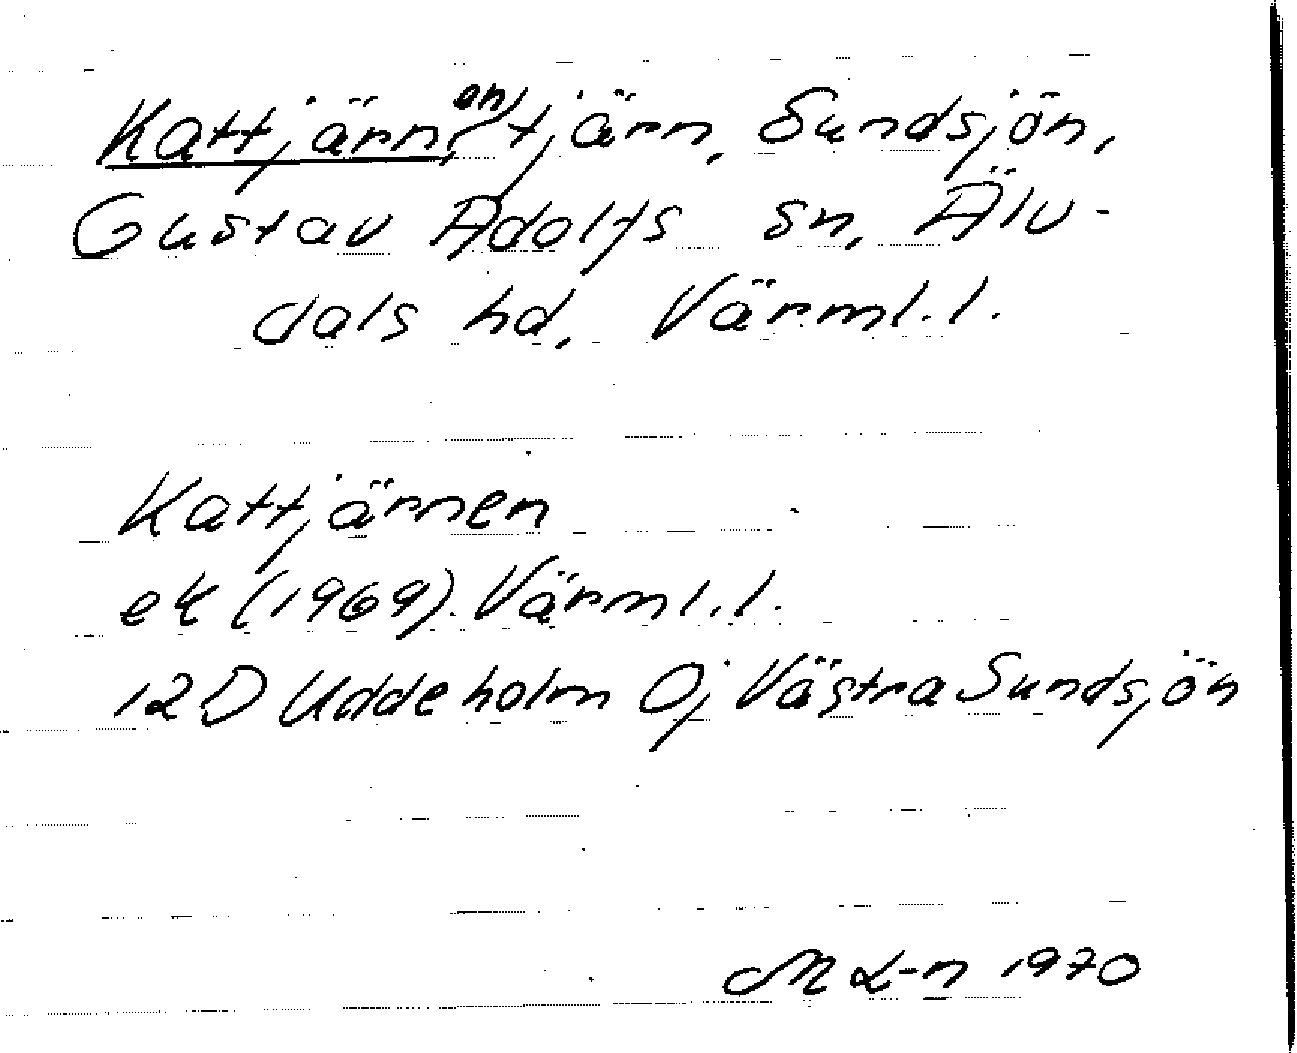 Kattjärnen, tjärn, Sundsjön,
Gustav Adolfs sn, Älv-
dals hd, Värml.l.
Kattjärnen
ek (1969). Värml.l.
12D Uddeholm 0j Västra Sundsjön
M L-n 1970